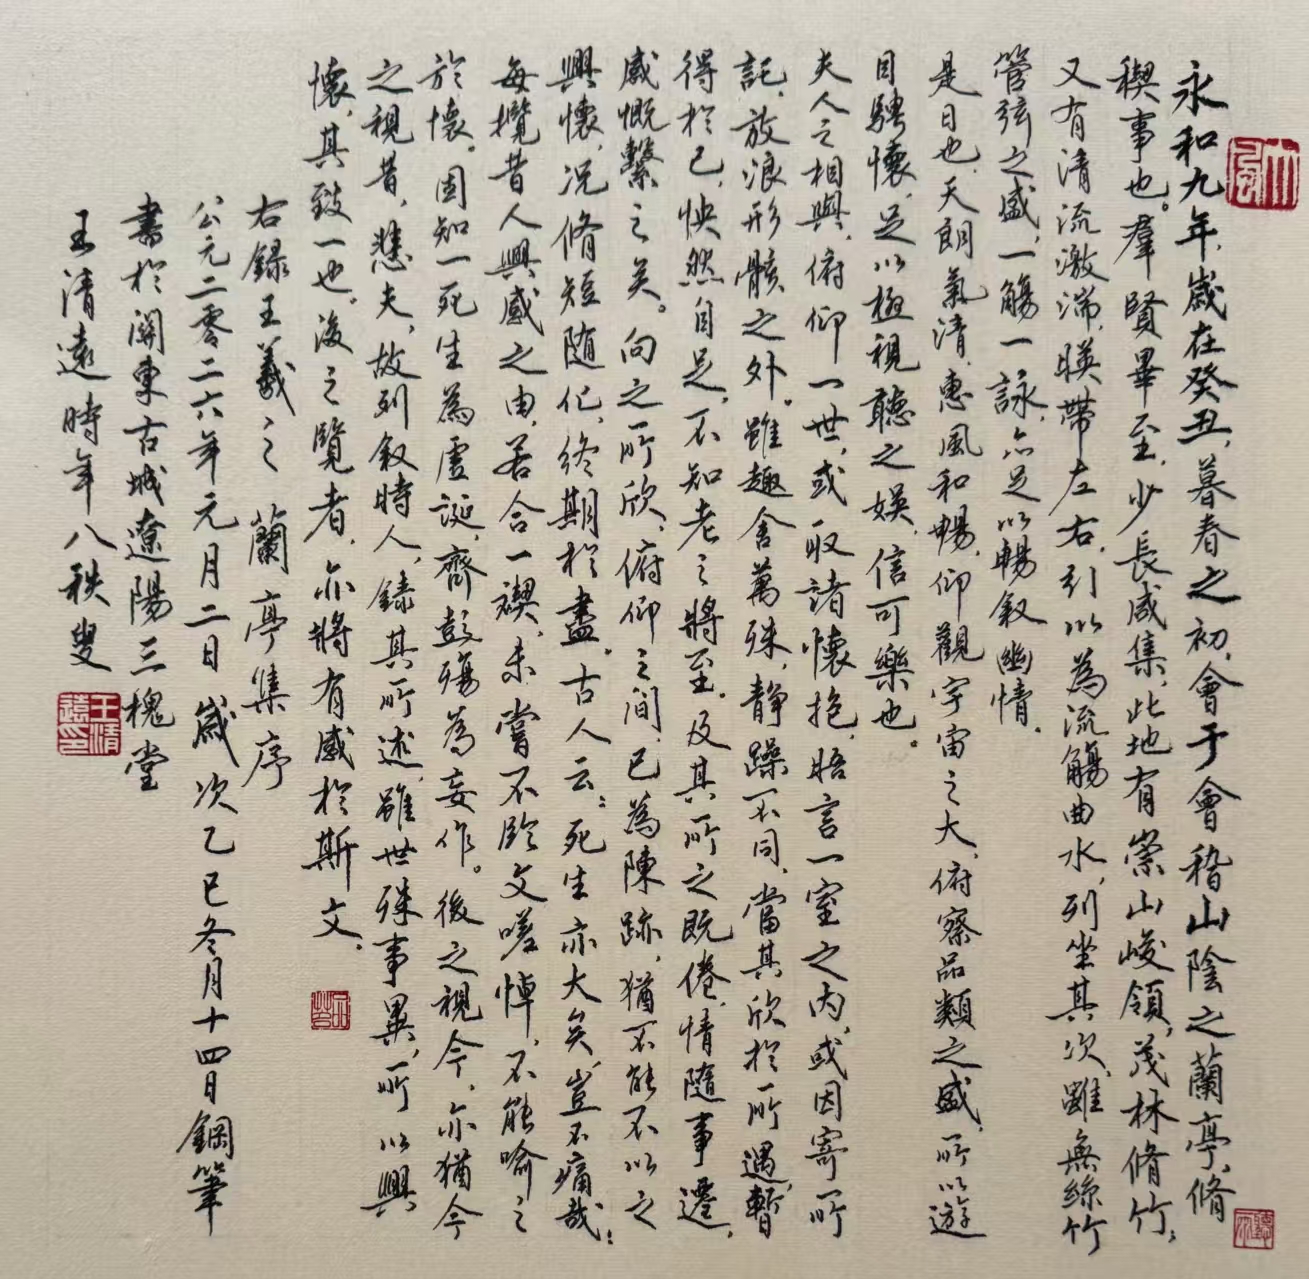 永和九年，歲在癸丑，暮春之初，會于會稽山陰之蘭亭，脩
稧事也。羣賢畢至，少長咸集，此地有崇山峻領，茂林脩竹；
又有清流激湍，暎帶左右，引以為流觴曲水，列坐其次，雖無絲竹
管弦之盛，一觴一詠，亦足以暢叙幽情。
是日也，天朗氣清，惠風和暢，仰觀宇宙之大，俯察品類之盛，所以遊
目騁懷，足以極視聽之娛，信可樂也。
夫人之相與，俯仰一世，或取諸懷抱，晤言一室之內，或因寄所
託，放浪形骸之外。雖趣舍萬殊，靜躁不同，當其欣於所遇，暫
得於己，怏然自足，不知老之將至。及其所之既倦，情隨事遷，
感慨繫之矣。向之所欣，俯仰之間，已為陳跡，猶不能不以之
興懷，況脩短隨化，終期於盡。古人云：死生亦大矣，豈不痛哉！
每攬昔人興感之由，若合一禊，未嘗不臨文嗟悼，不能喻之
於懷。固知一死生為虛誕，齊彭殤為妄作。後之視今，亦猶今
之視昔，悲夫，故列叙時人，錄其所述，雖世殊事異，所以興
懷，其致一也。後之覽者，亦將有感於斯文。
右録王羲之 蘭亭集序
公元二零二六年元月二日 歲次乙巳冬月十四日鋼筆
書於關東古城遼陽三槐堂
王清遠時年八秩叟
王清遠印